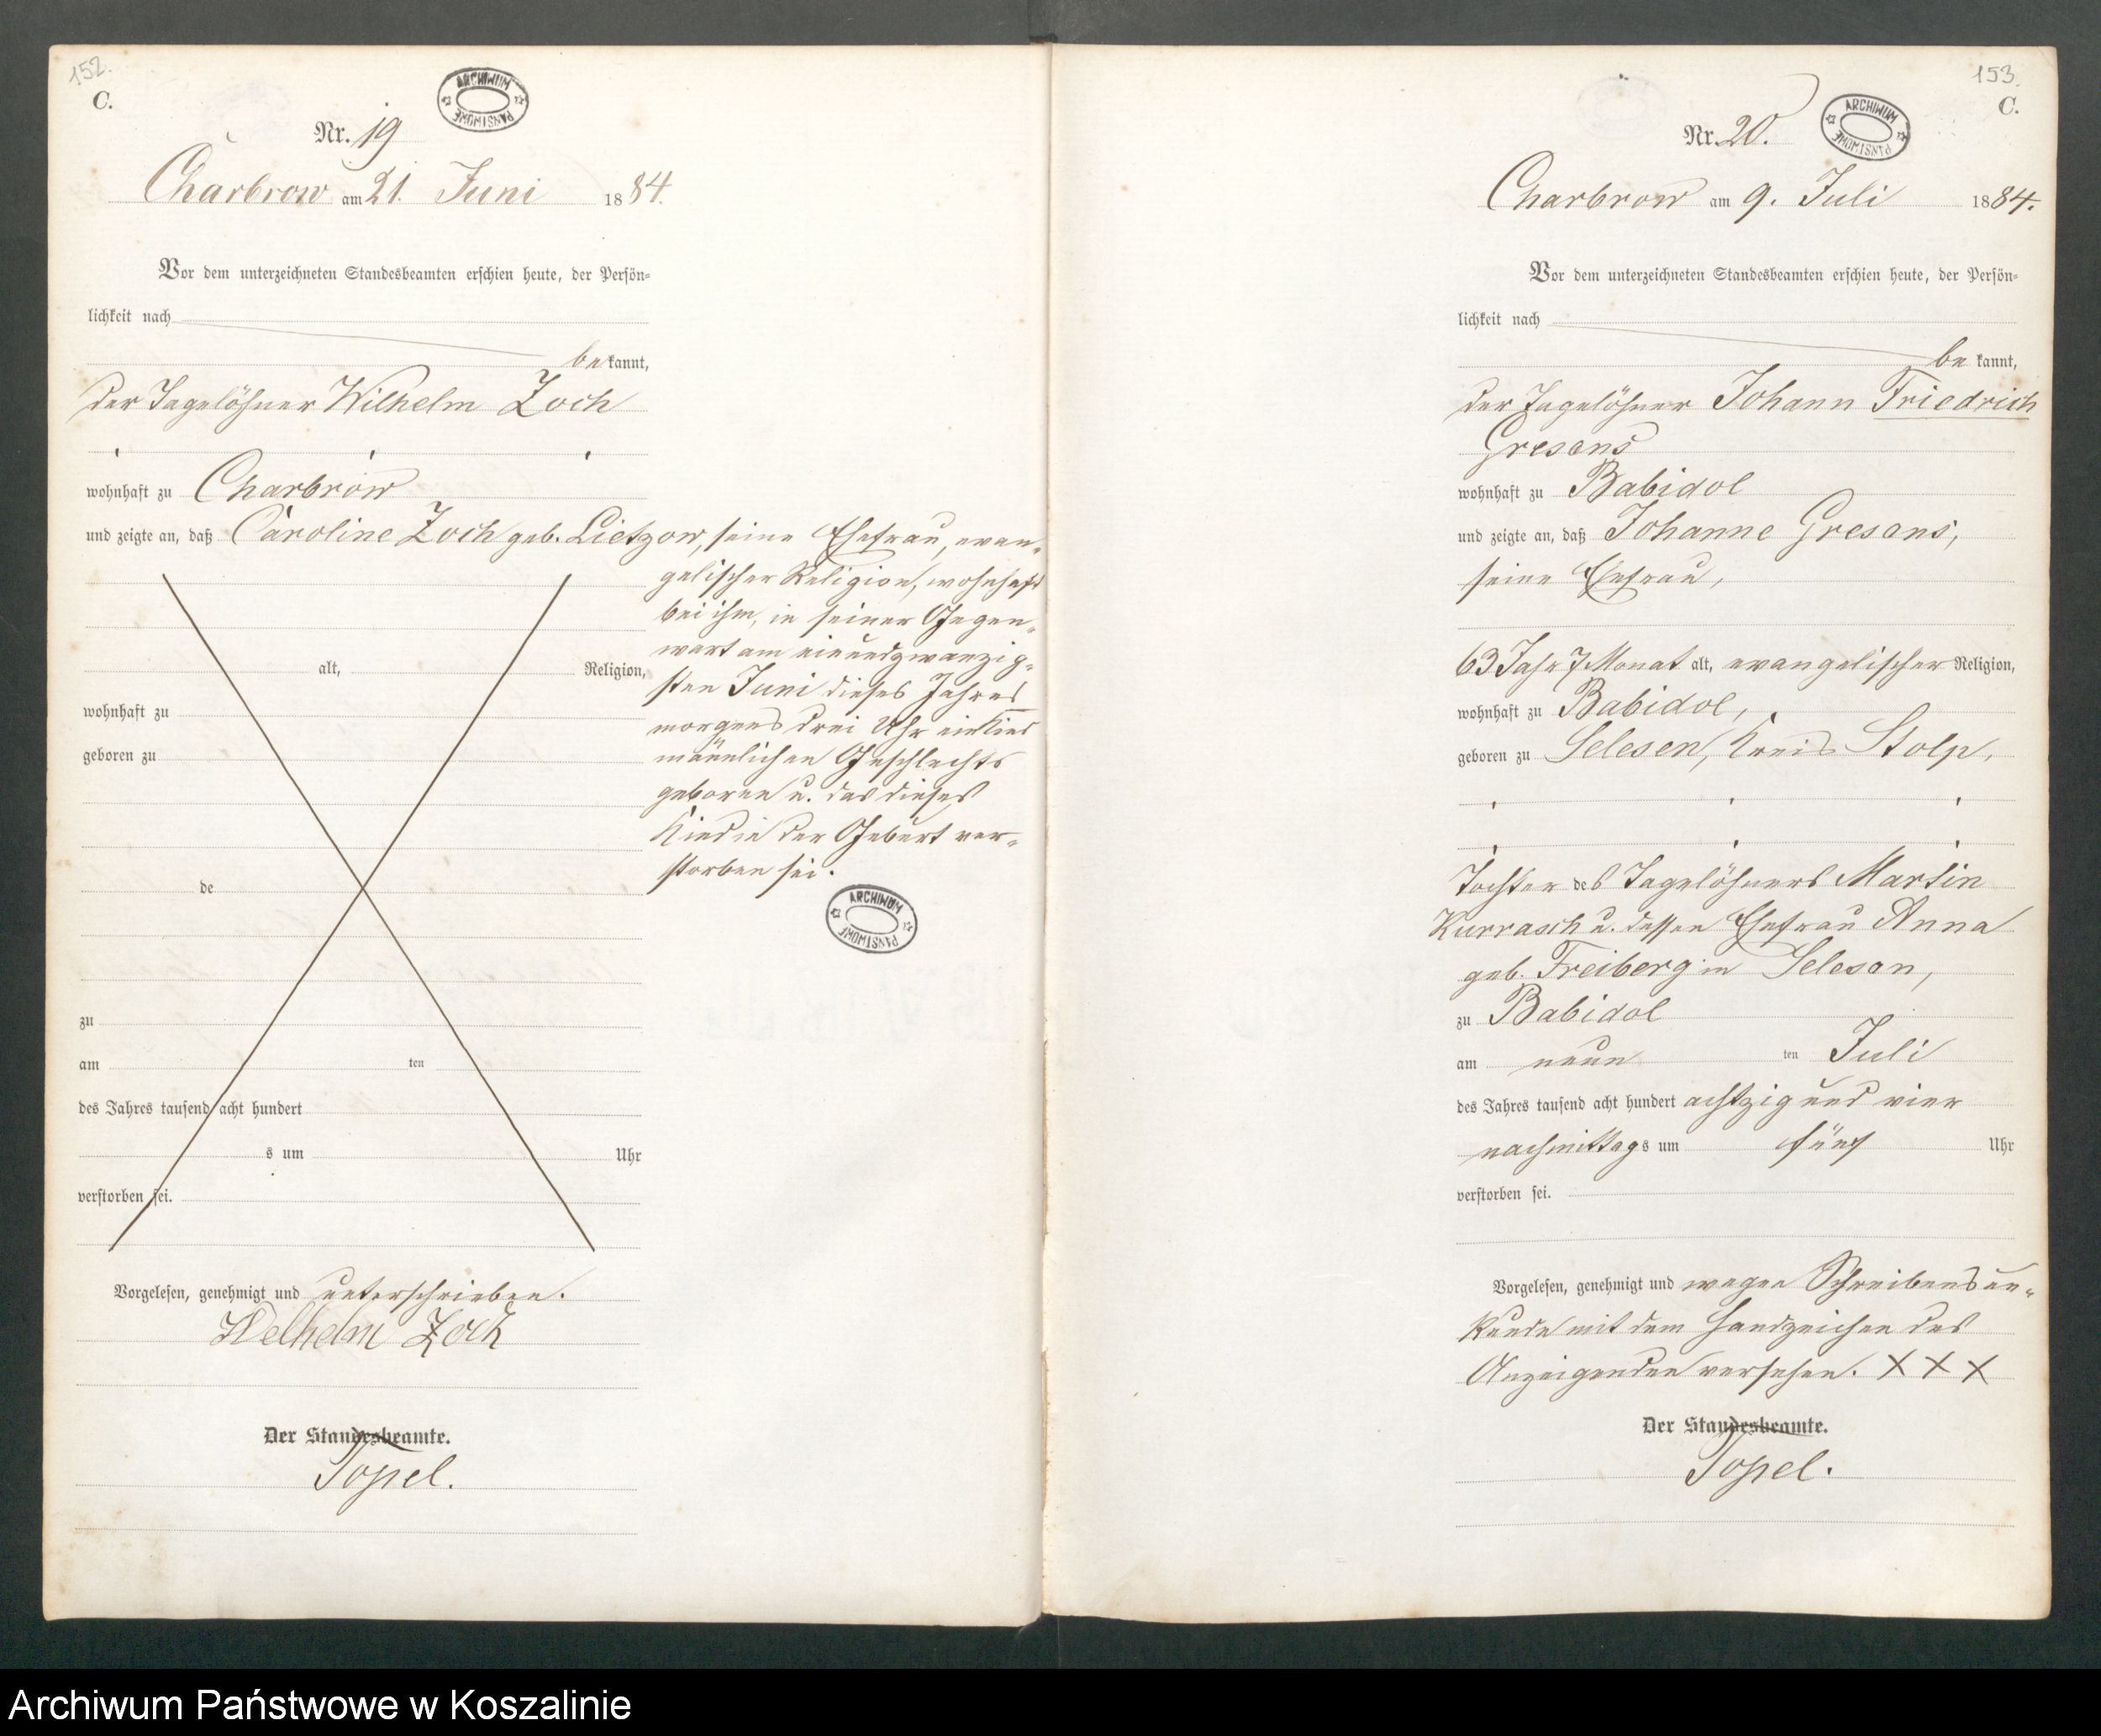 152.
C.
ARCHIWUM PAŃSTWOWE
Nr. 19
Charbrow am 21. Juni 1884.
Vor dem unterzeichneten Standesbeamten erschien heute, der Persön-
lichkeit nach
bekannt,
der Tagelöhner Wilhelm Zoch
wohnhaft zu Charbrow
und zeigte an, daß Caroline Zoch geb. Lietzow, seine Ehefrau, evan-
gelischer Religion, wohnhaft
bei ihm, in seiner Gegen-
wart am einundzwanzig-
sten Juni dieses Jahres
morgens drei Uhr ein Kind
männlichen Geschlechts
geboren u. das dieses
Kind in der Geburt ver-
storben sei.
alt, Religion,
wohnhaft zu
geboren zu
de
ARCHIWUM PAŃSTWOWE
zu
am ten
des Jahres tausend acht hundert
s um Uhr
verstorben sei.
Vorgelesen, genehmigt und unterschrieben.
Wilhelm Zoch
Der Standesbeamte.
Topel.
153.
C.
ARCHIWUM PAŃSTWOWE
Nr. 20.
Charbrow am 9. Juli 1884.
Vor dem unterzeichneten Standesbeamten erschien heute, der Persön-
lichkeit nach
bekannt,
der Tagelöhner Johann Friedrich
Gresens
wohnhaft zu Babidol
und zeigte an, daß Johanne Gresens,
seine Ehefrau,
63 Jahr 7 Monat alt, evangelischer Religion,
wohnhaft zu Babidol,
geboren zu Selesen, Kreis Stolp,
Tochter des Tagelöhners Martin
Kurrasch u. dessen Ehefrau Anna
geb. Freiberg in Selesen,
zu Babidol
am neun ten Juli
des Jahres tausend acht hundert achtzig und vier
nachmittags um fünf Uhr
verstorben sei.
Vorgelesen, genehmigt und wegen Schreibensun-
kunde mit dem Handzeichen des
Anzeigenden versehen. X X X
Der Standesbeamte.
Topel.
Archiwum Państwowe w Koszalinie